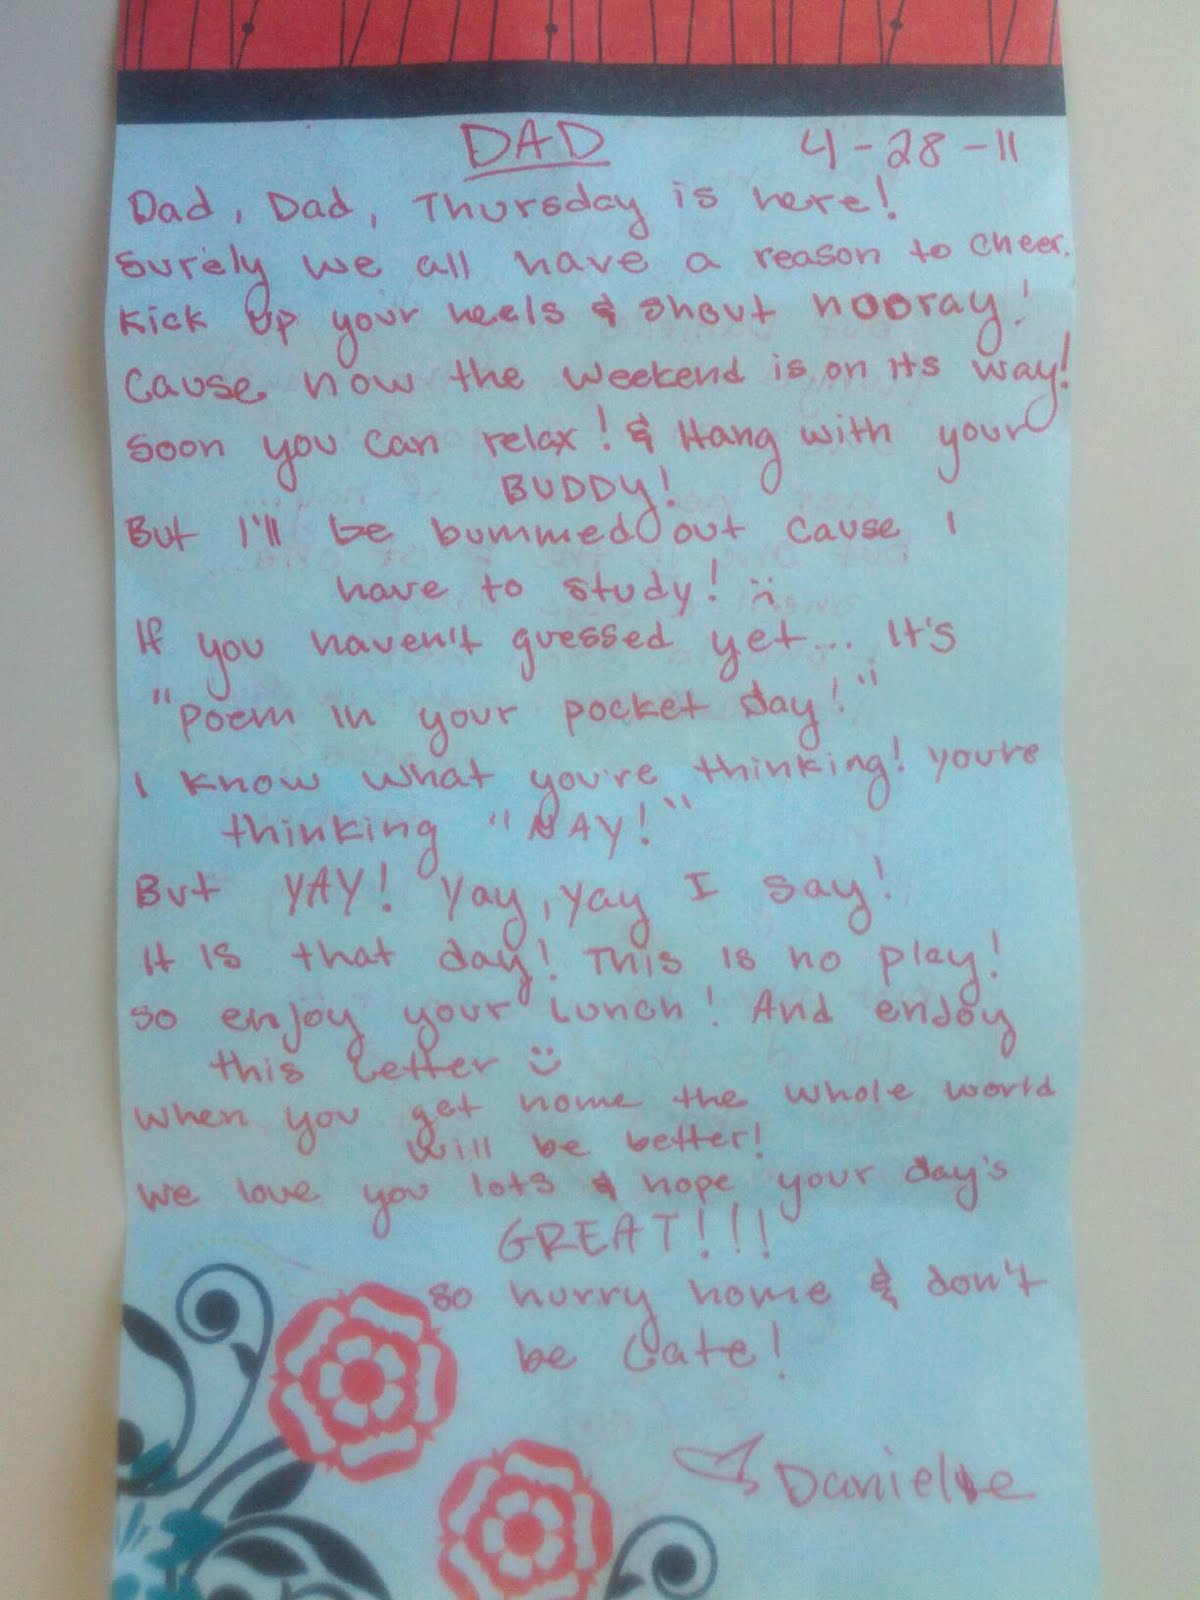 DAD 4-28-11
Dad, Dad, Thursday is here!
Surely we all have a reason to cheer.
Kick up your heels & shout hooray!
Cause now the weekend is on its way!
Soon you can relax! & Hang with your
BUDDY!
But I'll be bummed out cause I
have to study! :(
If you haven't guessed yet... It's
"Poem in your pocket day!"
I know what you're thinking! You're
thinking "NAY!"
But YAY! Yay, yay I say!
It is that day! This is no play!
So enjoy your lunch! And enjoy
this letter :)
When you get home the whole world
will be better!
We love you lots & hope your day's
GREAT!!!
So hurry home & don't
be late!
♡ Danielle